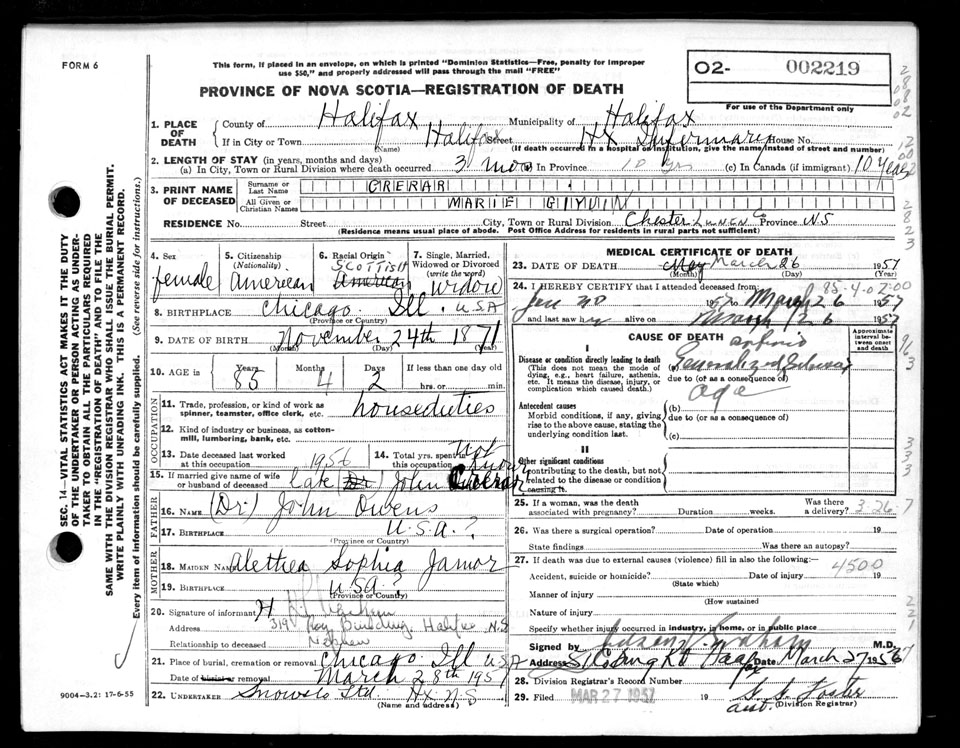 FORM 6
This form, if placed in an envelope, on which is printed "Dominion Statistics—Free, penalty for improper
use $50," and properly addressed will pass through the mail "FREE"
PROVINCE OF NOVA SCOTIA—REGISTRATION OF DEATH
O2- 002219
For use of the Department only
1. PLACE OF DEATH
County of Halifax Municipality of Halifax
If in City or Town Halifax Street Hx Infirmary House No.
(Name) (If death occurred in a hospital or institution, give the name instead of street and number)
2. LENGTH OF STAY (in years, months and days)
(a) In City, Town or Rural Division where death occurred 3 mos (b) In Province 10 yrs (c) In Canada (if immigrant) 10 years
3. PRINT NAME OF DECEASED
Surname or Last Name CRERAR
All Given or Christian Names MARIE GIVVIN
RESIDENCE No. Street City, Town or Rural Division Chester Lunen Co Province N S
(Residence means usual place of abode. Post Office Address for residents in rural parts not sufficient)
4. Sex female
5. Citizenship (Nationality) American
6. Racial Origin SCOTTISH American
7. Single, Married, Widowed or Divorced (write the word) widow
8. BIRTHPLACE Chicago Ill. USA
(Province or Country)
9. DATE OF BIRTH November 24th 1871
(Month) (Day) (Year)
10. AGE in Years 85 Months 4 Days 2 If less than one day old hrs. or min.
OCCUPATION
11. Trade, profession, or kind of work as spinner, teamster, office clerk, etc. houseduties
12. Kind of industry or business, as cotton-mill, lumbering, bank, etc.
13. Date deceased last worked at this occupation 1956
14. Total yrs. spent in this occupation not known
15. If married give name of wife or husband of deceased late Dr. John Crerar
FATHER
16. NAME (Dr.) John Owens
17. BIRTHPLACE U.S.A. ?
(Province or Country)
MOTHER
18. MAIDEN NAME Alethea Sophia Jamar
19. BIRTHPLACE USA ?
(Province or Country)
20. Signature of informant
Address 319 Roy Building, Halifax N.S
Relationship to deceased Nephew
21. Place of burial, cremation or removal Chicago Ill USA
Date of burial or removal March 28th 1957
22. UNDERTAKER Snows Ltd. Hx N S
(Name and address)
MEDICAL CERTIFICATE OF DEATH
23. DATE OF DEATH May March 26 1957
(Month) (Day) (Year)
24. I HEREBY CERTIFY that I attended deceased from:
Jan 1957 to March 26 1957
and last saw her alive on March 26 1957
CAUSE OF DEATH
Approximate interval between onset and death
I
Disease or condition directly leading to death
(This does not mean the mode of dying, e.g., heart failure, asthenia, etc. It means the disease, injury, or complication which caused death.)
Generalized
due to (or as a consequence of)
age
Antecedent causes
Morbid conditions, if any, giving rise to the above cause, stating the underlying condition last.
(b)
due to (or as a consequence of)
(c)
II
Other significant conditions
contributing to the death, but not related to the disease or condition causing it.
25. If a woman, was the death associated with pregnancy? Duration weeks. Was there a delivery? 3-26-7
26. Was there a surgical operation? Date of operation 19
State findings Was there an autopsy?
27. If death was due to external causes (violence) fill in also the following: 4500
Accident, suicide or homicide? Date of injury 19
(State which)
Manner of injury
(How sustained
Nature of injury
Specify whether injury occurred in industry, in home, or in public place
Signed by M.D.
Address Date March 27 1957
28. Division Registrar's Record Number
29. Filed MAR 27 1957 19
asst. (Division Registrar)
SEC. 14—VITAL STATISTICS ACT MAKES IT THE DUTY
OF THE UNDERTAKER OR PERSON ACTING AS UNDER-
TAKER TO OBTAIN ALL THE PARTICULARS REQUIRED
IN THE "REGISTRATION OF DEATH" AND TO FILE THE
SAME WITH THE DIVISION REGISTRAR WHO SHALL ISSUE THE BURIAL PERMIT.
WRITE PLAINLY WITH UNFADING INK. THIS IS A PERMANENT RECORD.
Every item of information should be carefully supplied. (See reverse side for instructions.)
9004-3.2: 17-6-55